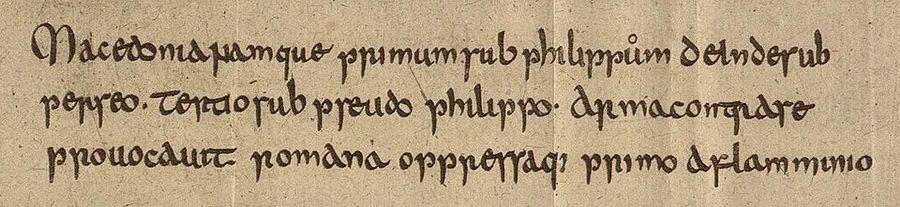 Macedonia namque primum sub philippům deinde sub
perseo. tertio sub pseudo philippo. arma contra se
prouocauit romana oppressaq; primo a flamminio